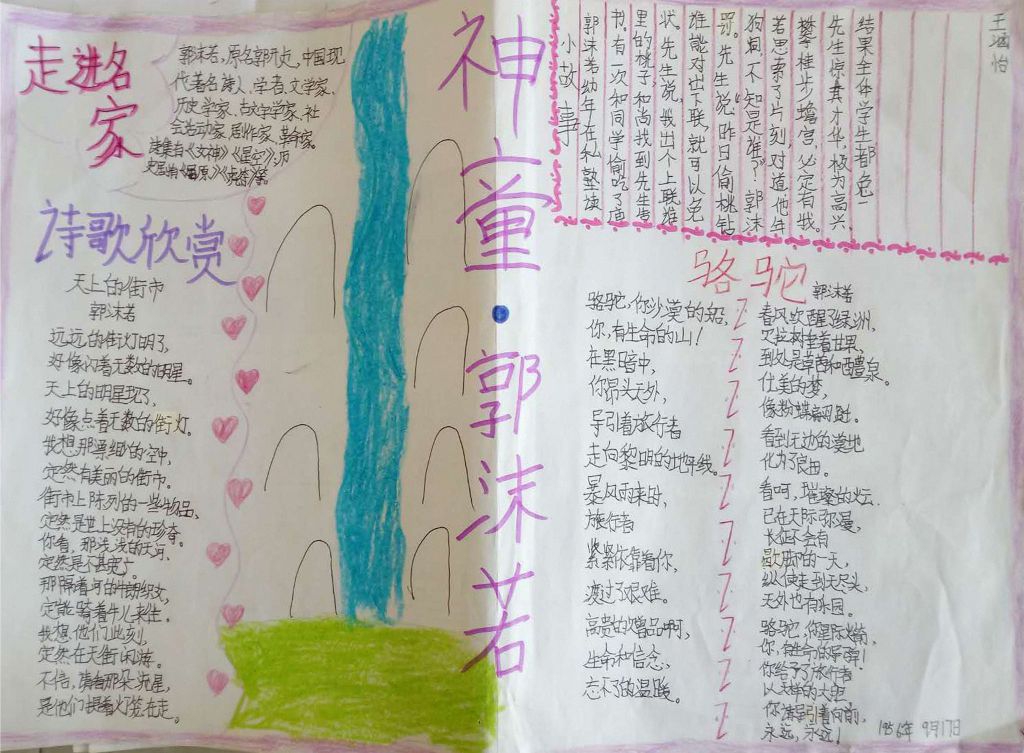 走进名
家
郭沫若,原名郭开贞,中国现
代著名诗人、学者、文学家、
历史学家、古文字学家、社
会活动家、剧作家、革命家。
诗集有《女神》《星空》,历
史剧有《屈原》《虎符》等。
诗歌欣赏
天上的街市
郭沫若
远远的街灯明了,
好像闪着无数的明星。
天上的明星现了,
好像点着无数的街灯。
我想那缥缈的空中,
定然有美丽的街市。
街市上陈列的一些物品,
定然是世上没有的珍奇。
你看,那浅浅的天河,
定然是不甚宽广。
那隔着河的牛郎织女,
定能骑着牛儿来往。
我想他们此刻,
定然在天街闲游。
不信,请看那朵流星,
是他们提着灯笼在走。
神童·郭沫若
王
怡
小故事
郭沫若幼年在私塾读
书。有一次和同学偷吃了庙
里的桃子,和尚找到先生告
状。先生说,我出个上联,谁
谁能对出下联,就可以免
罚。先生说:“昨日偷桃钻
狗洞,不知是谁?”郭沫
若思索了片刻,对道:他年
攀桂步蟾宫,必定有我。
先生惊其才华,极为高兴,
结果全体学生都免
骆驼
郭沫若
骆驼,你沙漠的船,
你,有生命的山!
在黑暗中,
你昂头天外,
导引着旅行者
走向黎明的地平线。
暴风雨来时,
旅行者
紧紧依靠着你,
渡过了艰难。
高贵的赠品呵,
生命和信念,
忘不了的温暖。
春风吹醒了绿洲,
贝拉树垂着甘果,
到处是草茵和醴泉。
优美的梦,
像粉蝶翩跹,
看到无边的漠地
化为了良田。
看呵,璀璨的火云
已在天际弥漫,
长征不会有
歇脚的一天,
纵使走到天尽头,
天外也有乐园。
骆驼,你星际火箭,
你,有生命的导弹!
你给予了旅行者
以天样的大胆
你请导引着向前,
永远,永远!
1956年 9月17日